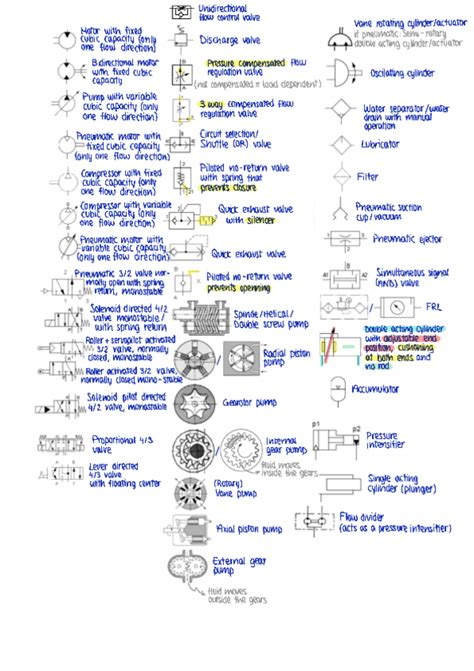 Motor with fixed
cubic capacity (only
one flow direction)
Bidirectional motor
with fixed cubic
capacity
Pump with variable
cubic capacity (only
one flow direction)
Pneumatic motor with
fixed cubic capacity
(only one flow direction)
Compressor with fixed
cubic capacity (only
one flow direction)
Compressor with variable
cubic capacity (only
one flow direction)
Pneumatic motor with
variable cubic capacity
(only one flow direction)
Pneumatic 3/2 valve nor-
mally open with spring
return, monostable
Solenoid directed 4/2
valve monostable
with spring return
Roller + servopilot activated
3/2 valve, normally
closed, monostable
Roller activated 3/2 valve,
normally closed mono-stable
Solenoid pilot directed
4/2 valve, monostable
Proportional 4/3
valve
Lever directed
4/3 valve
with floating center
Unidirectional
flow control valve
Discharge valve
Pressure compensated flow
regulation valve
(not compensated = load dependent)
3 way compensated flow
regulation valve
Circuit selection/
Shuttle (OR) valve
Piloted no-return valve
with spring that
prevents closure
Quick exhaust valve
with silencer
Quick exhaust valve
Piloted no-return valve
prevents openning
Spindle/Helical/
Double screw pump
/
Radial piston
pump
Gerotor pump
/
Internal
gear pump
fluid moves
inside the gears
(Rotary)
Vane pump
Axial piston pump
External gear
pump
fluid moves
outside the gears
Vane rotating cylinder/actuator
if pneumatic: Semi-rotary
double acting cylinder/actuator
Oscilating cylinder
Water separator/water
drain with manual
operation
Lubricator
Filter
Pneumatic suction
cup/vacuum
Pneumatic ejector
A
1 A2
Simultaneous signal
(AND) valve
/
FRL
Double acting cylinder
with adjustable end
position, cushioning
at both ends and
no rod
Accumulator
p1
p2
Pressure
intensifier
Single acting
cylinder (plunger)
Flow divider
(acts as a pressure intensifier)